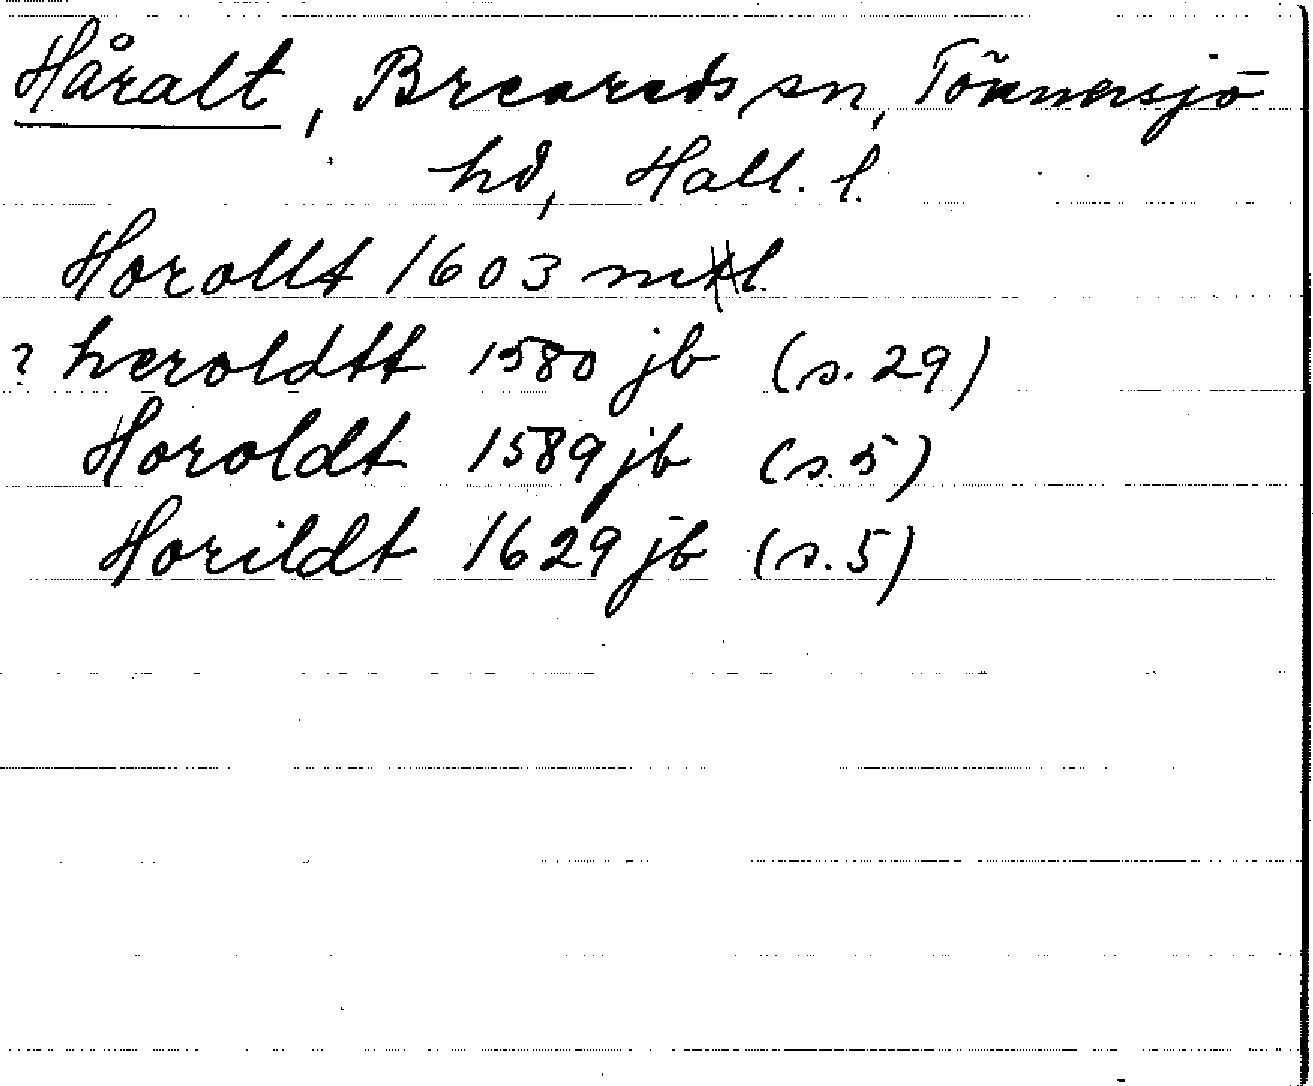 Håralt, Breareds sn, Tönnersjö
hd, Hall. l.
Horallt 1603 mtl
? heroldtt 1580 jb (s. 29)
Horoldt 1589 jb (s. 5)
Horildt 1629 jb (s. 5)